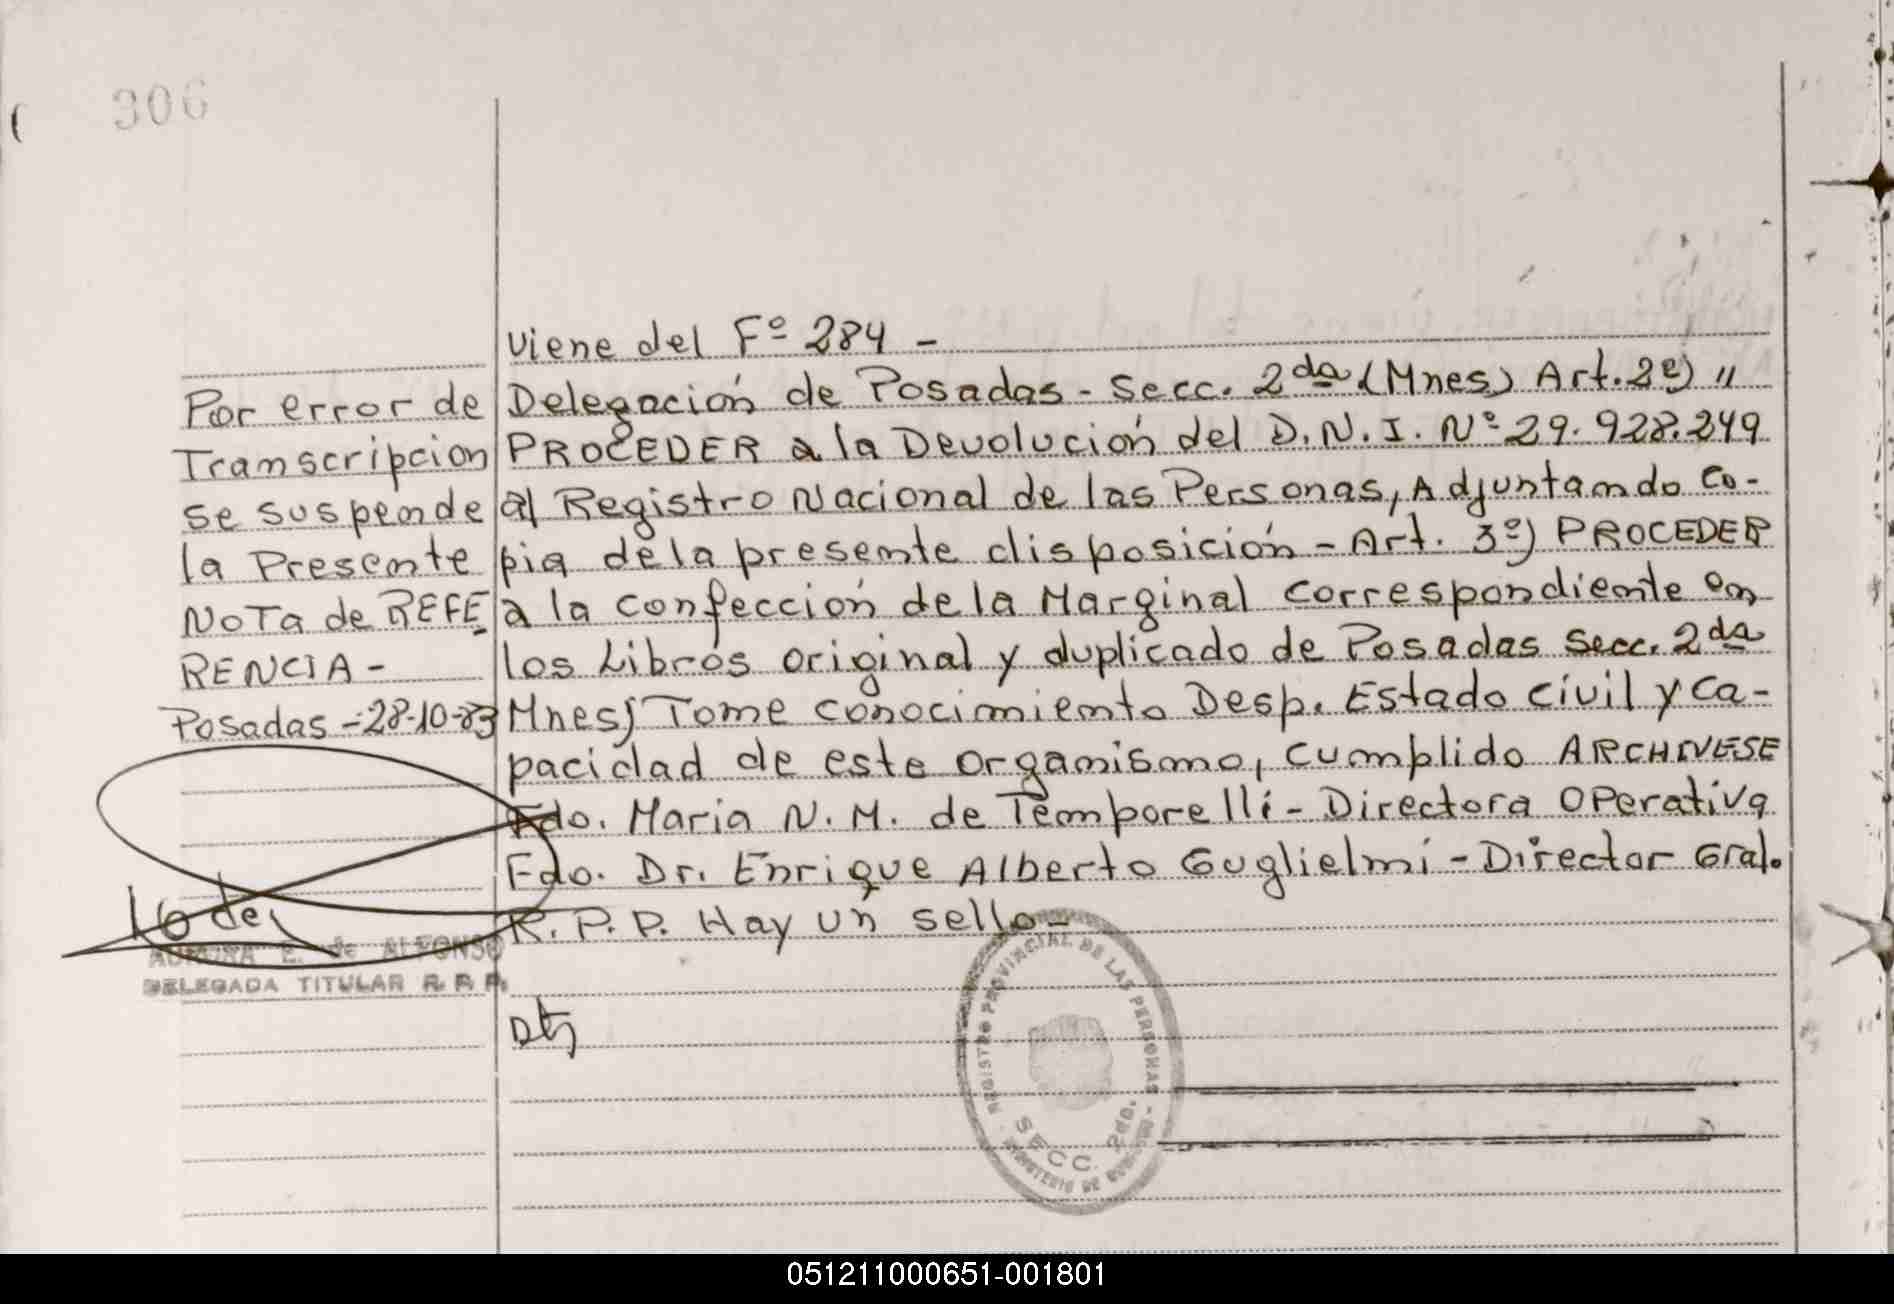 306
Viene del Fº 284 -
Delegación de Posadas - Secc. 2da (Mnes) Art. 2º) "
PROCEDER a la Devolución del D.N.I. Nº 29.928.249
al Registro Nacional de las Personas, Adjuntando Co-
pia de la presente disposición - Art. 3º) PROCEDER
a la confección de la Marginal correspondiente en
los Libros original y duplicado de Posadas Secc. 2da
Mnes) Tome conocimiento Desp. Estado Civil y Ca-
pacidad de este organismo, cumplido ARCHIVESE
Fdo. Maria N. M. de Temporelli - Directora Operativa
Fdo. Dr. Enrique Alberto Guglielmi - Director Gral.
R.P.P. Hay un sello -
Por error de
Transcripcion
se suspende
la Presente
NoTa de REFE
RENCIA -
Posadas - 28-10-83
AURORA E. de ALFONSO
DELEGADA TITULAR R. P. P.
REGISTRO PROVINCIAL DE LAS PERSONAS
SECC. 2da.
051211000651-001801